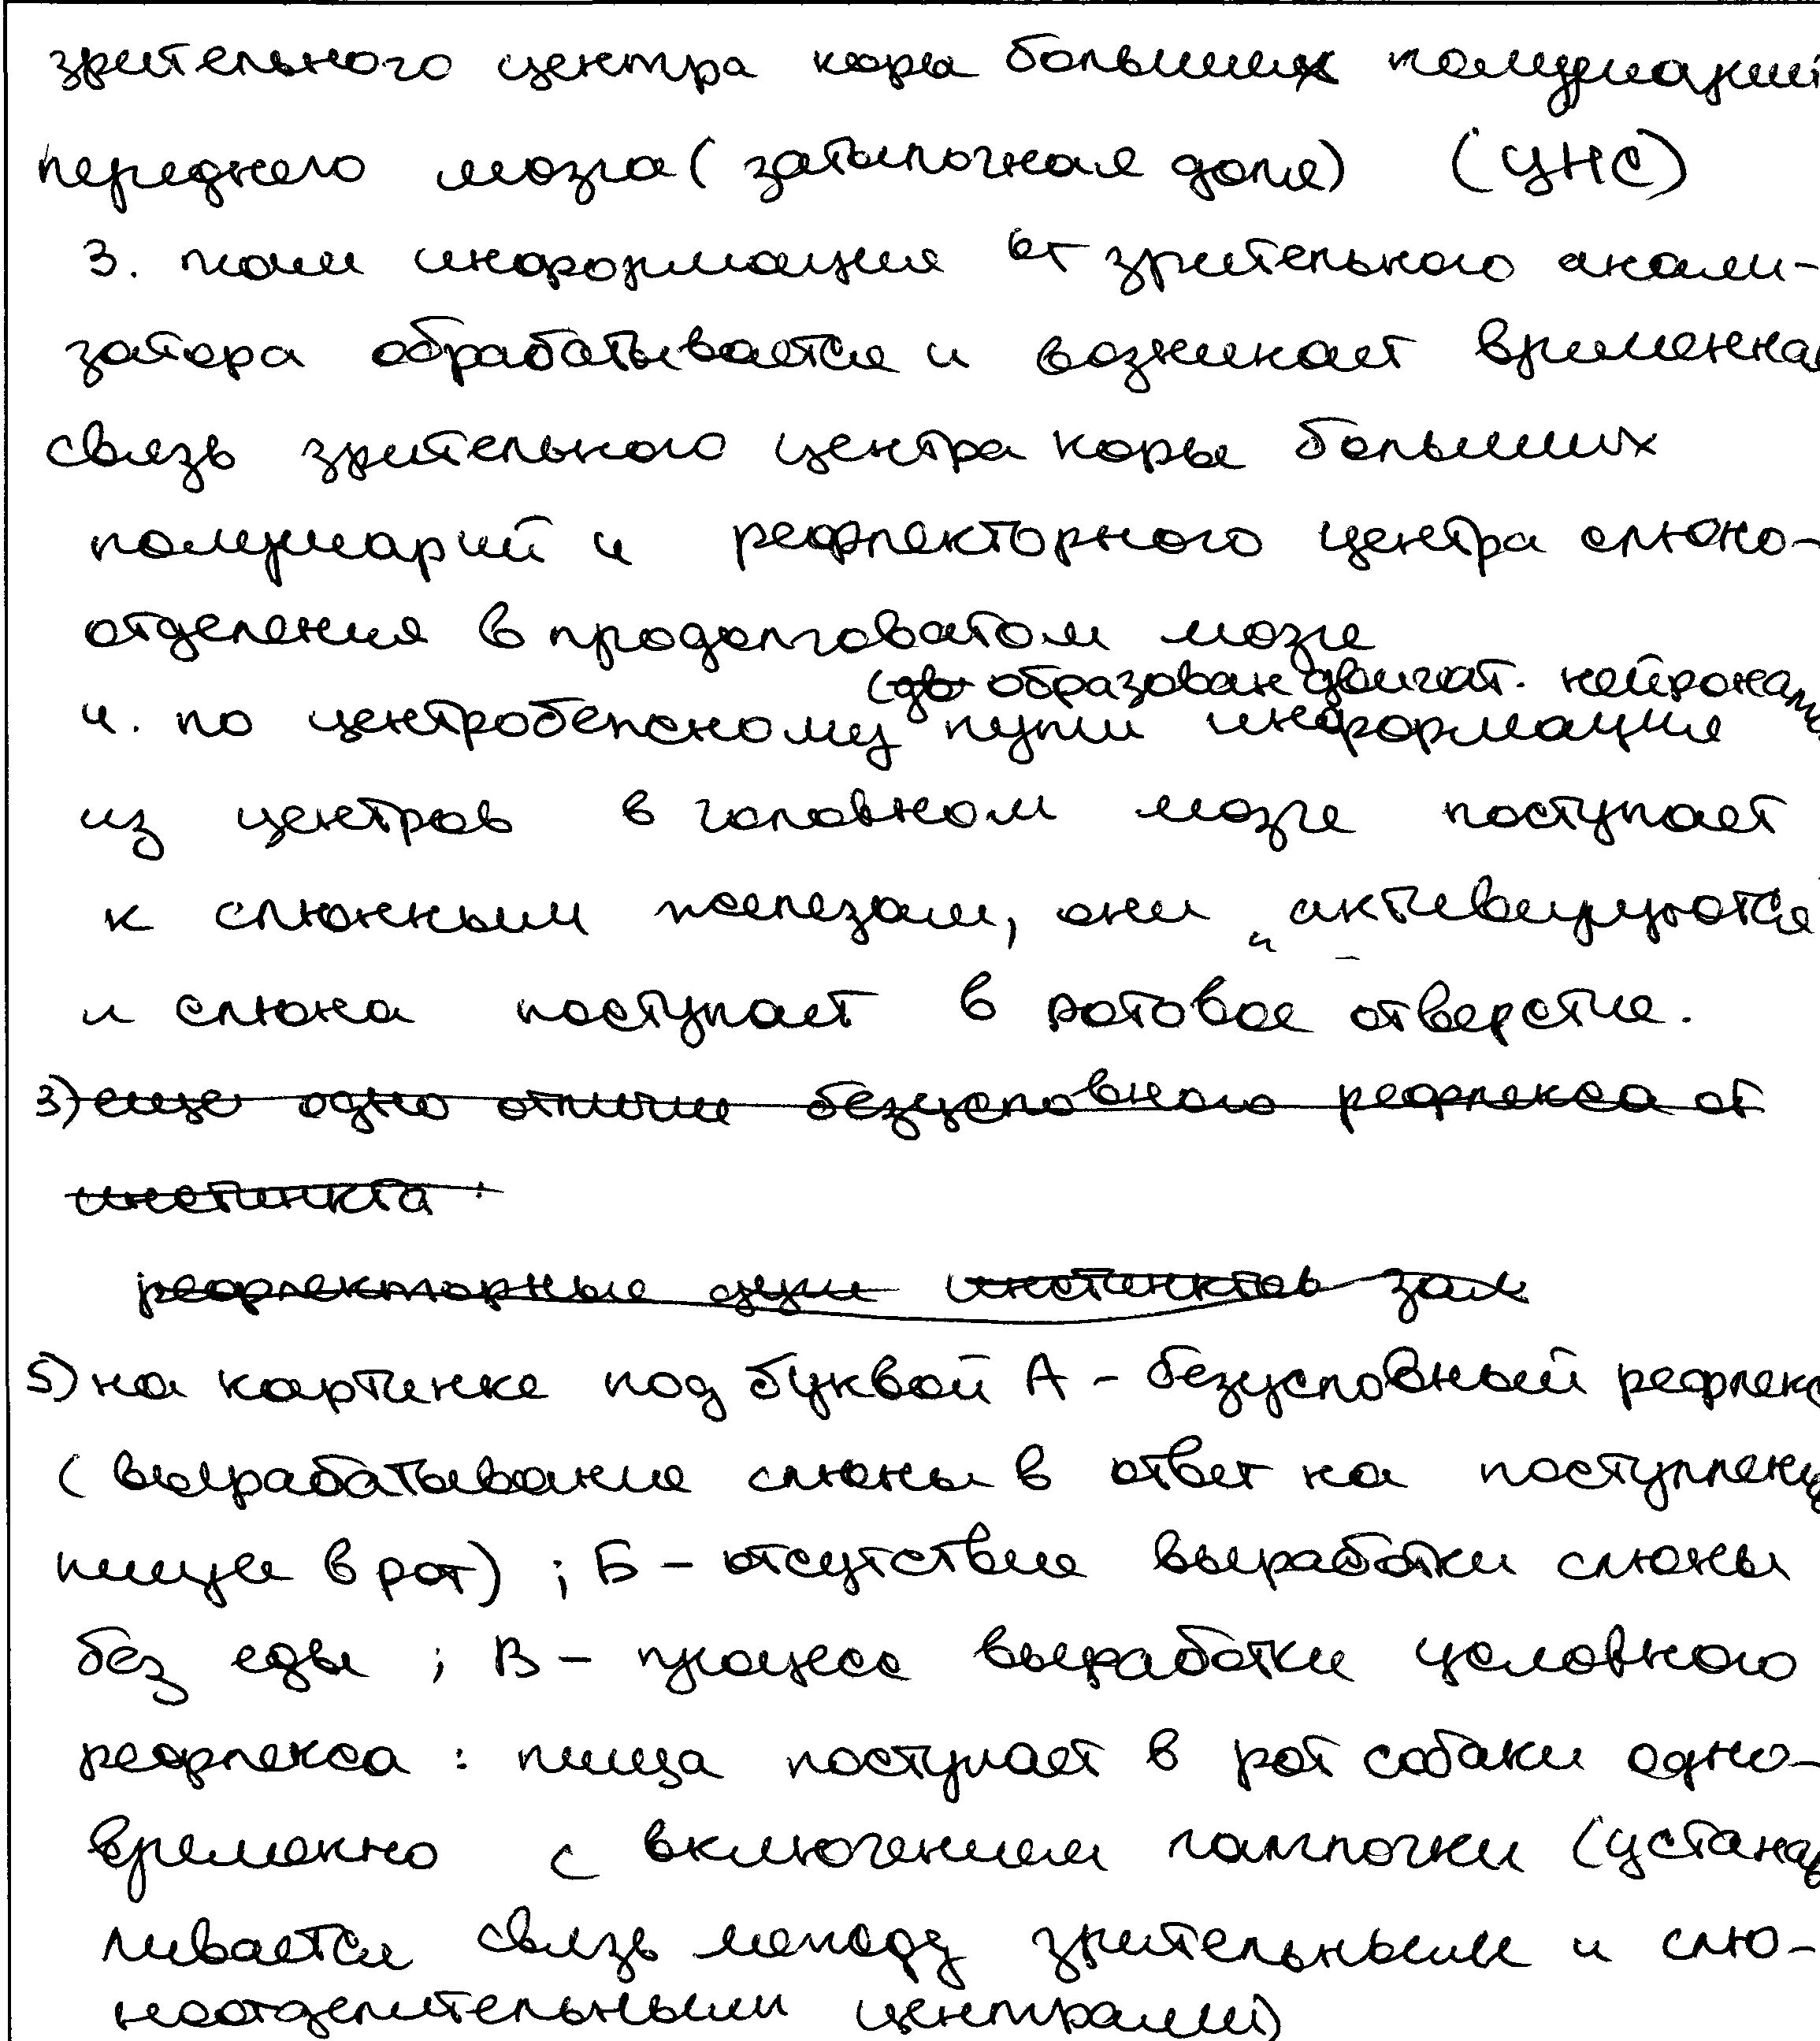 зрительного центра коры больших полушарий
переднего мозга (затылочная доля) (ЦНС)
3. там информация от зрительного анали-
затора обрабатывается и возникает временная
связь зрительного центра коры больших
полушарий и рефлекторного центра слюно-
отделения в продолговатом мозге
(дв образован двигат. нейронами
4. по центробежному пути информация
из центров в головном мозге поступает
к слюнным железам, они активируются
и слюна поступает в ротовое отверстие.
3) еще одно отличие безусловного рефлекса от
инстинкта:
рефлекторные дуги инстинктов зам
5) на картинке под буквой А - безусловный рефлекс
(вырабатывание слюны в ответ на поступлени
пищи в рот) ; Б - отсутствие выработки слюны
без еды ; В - процесс выработки условного
рефлекса : пища поступает в рот собаки одно-
временно с включением лампочки (устанав
ливается связь между зрительными и слю-
ноотделительными центрами)